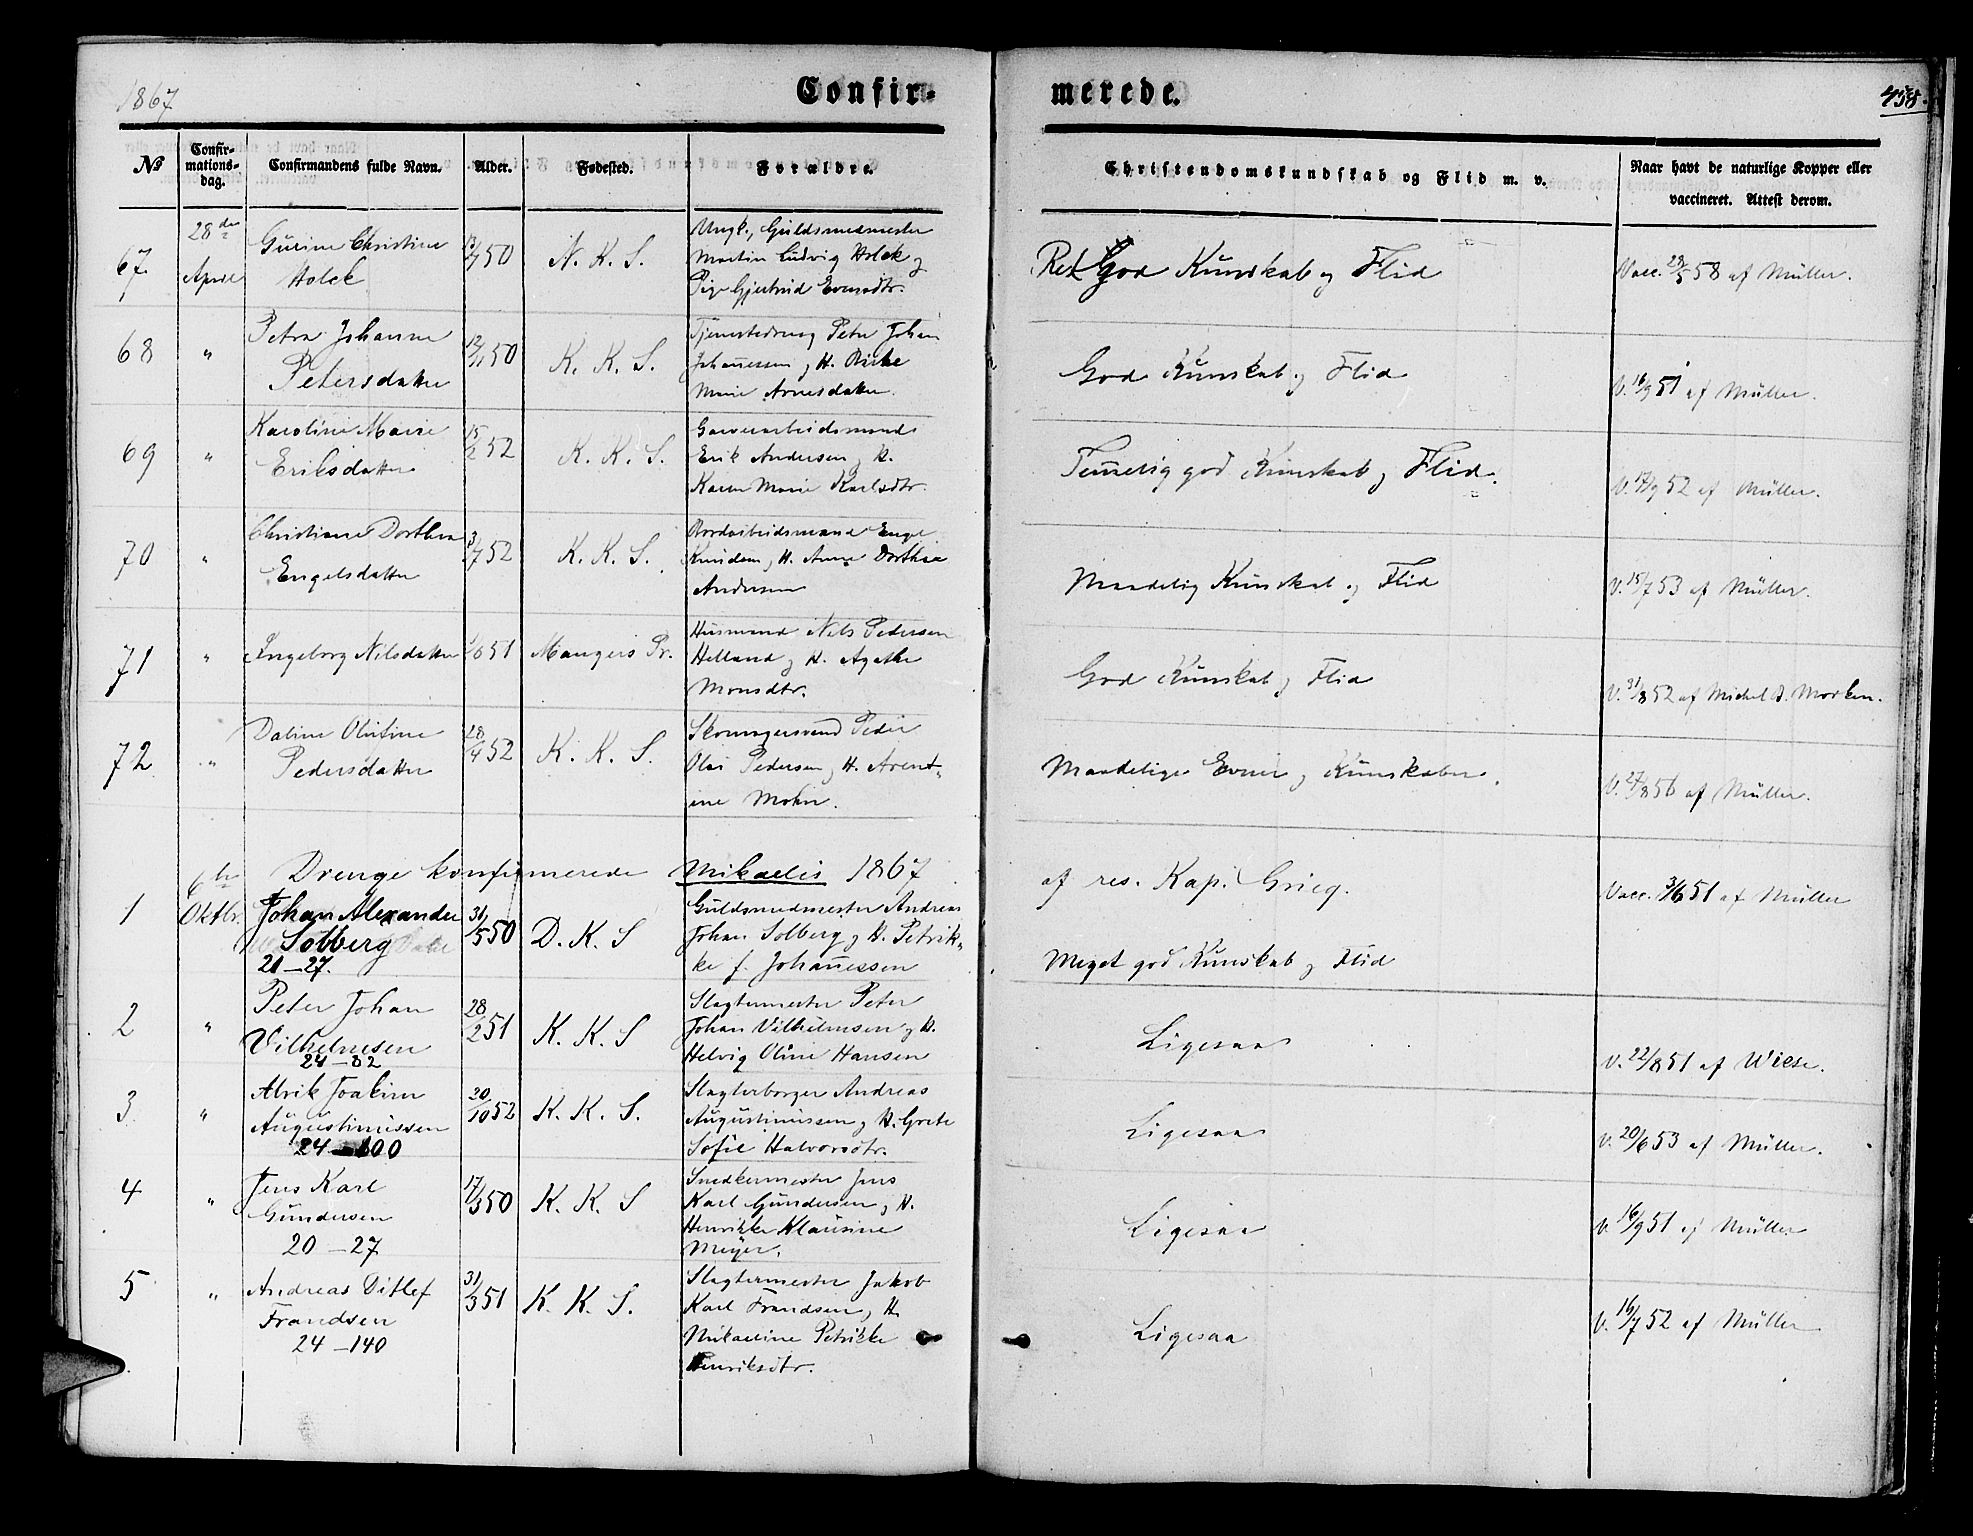 1867
Confir-
merede.
458.
No
Confir-
mations-
dag.
Confirmandens fulde Navn.
Alder.
Fødested.
Forældre.
Christendomskundskab og Flid m. v.
Naar havt de naturlige Kopper eller
vaccineret. Attest derom.
67.
28de
April
Gurine Christine
Holck
50
N. K. S.
Ungk., Guldsmedmester
Martin Ludvig Holck og
Pige Gjertrud Evensdtr.
Ret God Kunskab og Flid
Vacc. 58 af Müller.
68
"
Petra Johanne
Petersdatter
12/11 50
K. K. S.
Tjenestedreng Peter Johan
Johannessen og H.
Marie Arnesdatter
God Kunskab og Flid
V. 16/9 51 af Müller.
69
"
Karoline Marie
Eriksdatter
15/2 52
K. K. S.
Garverarbeidsmand
Erik Andersen og H.
Karen Marie Karlsdtr.
Temelig god Kunskab og Flid.
V. 17/9 52 af Müller.
70
"
Christiane Dorthea
Engelsdatter
3/7 52
K. K. S.
Engel
Knudsen og H. Anne Dorthea
Andersen
Maadelig Kunskab og Flid
V. 15/7 53 af Müller.
71
"
Ingeborg Nilsdatter
1/6 51
Mangers Pr.
Husmand Nils Pedersen
Helland og H. Agathe
Monsdtr.
God Kunskab og Flid
V. 31/8 52 af Michel J. Morken.
72
"
Daline Olufine
Pedersdatter
28/4 52
K. K. S.
Skomagersvend Peder
Olai Pedersen og H. Arent-
ine Mohn.
Maadelige Evner og Kunskaber.
V. 27/8 56 af Müller.
Drenge konfirmerede Mikaelis 1867
af res. Kap. Grieg.
1
6te
Oktbr.
Johan Alexander
Solberg
21-27.
31/5 50
D. K. S
Guldsmedmester Andreas
Johan Solberg og H. Petrik-
ke f. Johannessen
Meget god Kunskab og Flid
Vacc. 3/6 51 af Müller
2
"
Peter Johan
Vilhelmsen
24-82
28/2 51
K. K. S
Slagtermester Peter
Johan Vilhelmsen og H.
Helvig Oline Hansen
Ligesaa
V. 22/8 51 af Wiese.
3.
"
Alrik Joakim
Augustinussen
24-100
20/10 52
K. K. S.
Slagterborger Andreas
Augustinussen og H. Grete
Sofie Halvorsdtr.
Ligesaa
V. 20/6 53 af Müller.
4
"
Jens Karl
Gundersen
20-27
17/3 50
K. K. S
Snedkermester Jens
Karl Gundersen og H.
Henrikke Klausine
Meyer.
Ligesaa
V. 16/9 51 af Müller
5
"
Andreas Ditlef
Frandsen
24-140
31/3 51
K. K. S.
Slagtermester Jakob
Karl Frandsen og H.
Mikaeline Petrikke
Henriksdtr.
Ligesaa
V. 16/7 52 af Müller